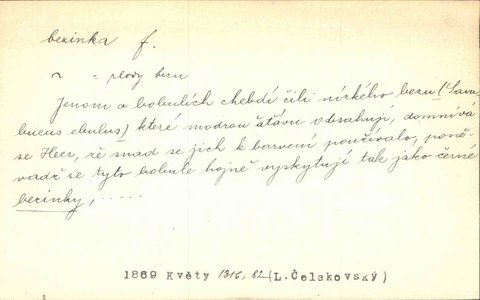 bezinka f.
~ = plody bezu
Jenom o bobulích chebdí čili nízkého bezu (Sam
bucus ebulus) které modrou šťávu obsahují, domnívá
se Heer, že snad se jich k barvení používalo, poně-
vadž se tyto bobule hojně vyskytují tak jako černé
bezinky, .....
1869 Květy 1316, 82 (L.Čelakovský)